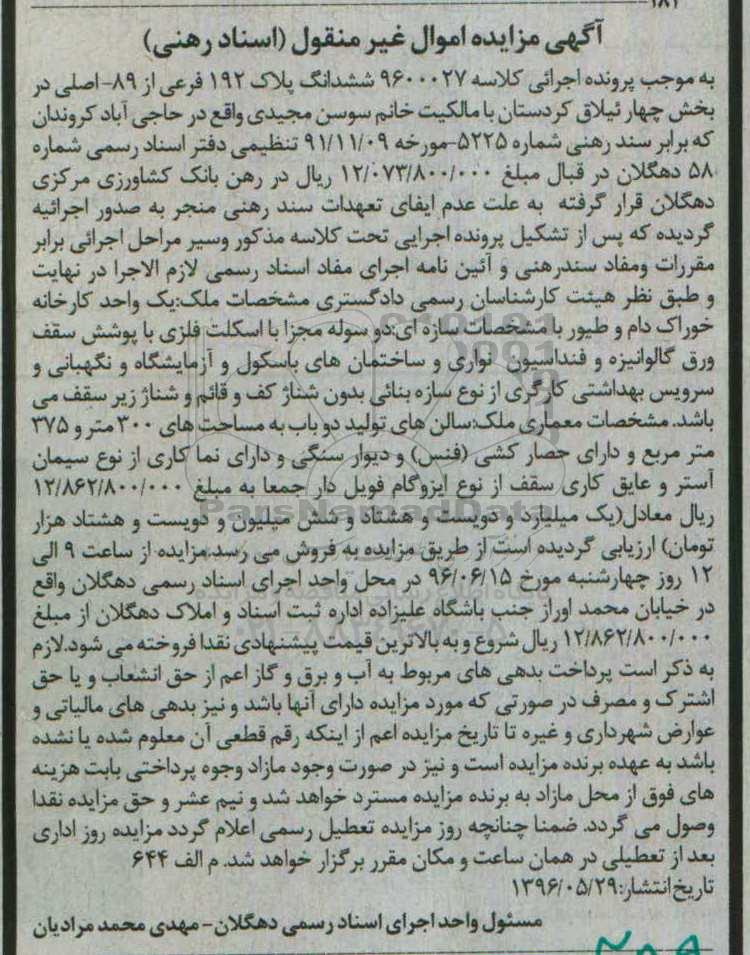 ۱۸۲
آگهی مزایده اموال غیر منقول (اسناد رهنی)
به موجب پرونده اجرائی کلاسه ۹۶۰۰۰۲۷ ششدانگ پلاک ۱۹۲ فرعی از ۸۹-اصلی در
بخش چهار ئیلاق کردستان با مالکیت خانم سوسن مجیدی واقع در حاجی آباد کروندان
که برابر سند رهنی شماره ۵۲۲۵-مورخه ۹۱/۱۱/۰۹ تنظیمی دفتر اسناد رسمی شماره
۵۸ دهگلان در قبال مبلغ ۱۲/۰۷۳/۸۰۰/۰۰۰ ریال در رهن بانک کشاورزی مرکزی
دهگلان قرار گرفته به علت عدم ایفای تعهدات سند رهنی منجر به صدور اجرائیه
گردیده که پس از تشکیل پرونده اجرایی تحت کلاسه مذکور وسیر مراحل اجرائی برابر
مقررات ومفاد سندرهنی و آئین نامه اجرای مفاد اسناد رسمی لازم الاجرا در نهایت
و طبق نظر هیئت کارشناسان رسمی دادگستری مشخصات ملک:یک واحد کارخانه
خوراک دام و طیور با مشخصات سازه ای:دو سوله مجزا با اسکلت فلزی با پوشش سقف
ورق گالوانیزه و فنداسیون نواری و ساختمان های باسکول و آزمایشگاه و نگهبانی و
سرویس بهداشتی کارگری از نوع سازه بنائی بدون شناژ کف و قائم و شناژ زیر سقف می
باشد. مشخصات معماری ملک:سالن های تولید دو باب به مساحت های ۳۰۰ متر و ۳۷۵
متر مربع و دارای حصار کشی (فنس) و دیوار سنگی و دارای نما کاری از نوع سیمان
آستر و عایق کاری سقف از نوع ایزوگام فویل دار جمعا به مبلغ ۱۲/۸۶۲/۸۰۰/۰۰۰
ریال معادل(یک میلیارد و دویست و هشتاد و شش میلیون و دویست و هشتاد هزار
تومان) ارزیابی گردیده است از طریق مزایده به فروش می رسد.مزایده از ساعت ۹ الی
۱۲ روز چهارشنبه مورخ ۹۶/۰۶/۱۵ در محل واحد اجرای اسناد رسمی دهگلان واقع
در خیابان محمد اوراز جنب باشگاه علیزاده اداره ثبت اسناد و املاک دهگلان از مبلغ
۱۲/۸۶۲/۸۰۰/۰۰۰ ریال شروع و به بالاترین قیمت پیشنهادی نقدا فروخته می شود.لازم
به ذکر است پرداخت بدهی های مربوط به آب و برق و گاز اعم از حق انشعاب و یا حق
اشترک و مصرف در صورتی که مورد مزایده دارای آنها باشد و نیز بدهی های مالیاتی و
عوارض شهرداری و غیره تا تاریخ مزایده اعم از اینکه رقم قطعی آن معلوم شده یا نشده
باشد به عهده برنده مزایده است و نیز در صورت وجود مازاد وجوه پرداختی بابت هزینه
های فوق از محل مازاد به برنده مزایده مسترد خواهد شد و نیم عشر و حق مزایده نقدا
وصول می گردد. ضمنا چنانچه روز مزایده تعطیل رسمی اعلام گردد مزایده روز اداری
بعد از تعطیلی در همان ساعت و مکان مقرر برگزار خواهد شد. م الف ۶۴۴
تاریخ انتشار:۱۳۹۶/۰۵/۲۹
مسئول واحد اجرای اسناد رسمی دهگلان- مهدی محمد مرادیان
ParsNamadData